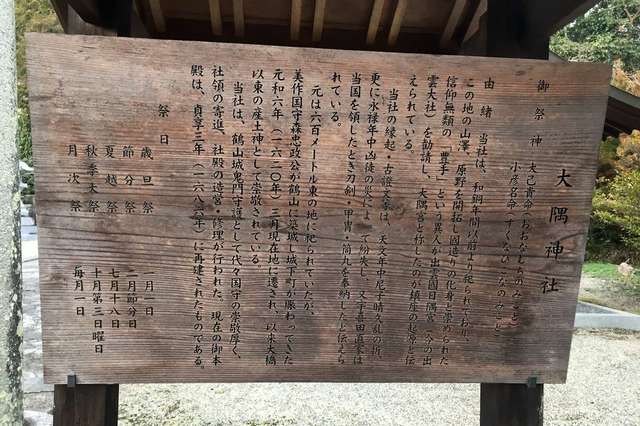 大隅神社
御祭神　大己貴命（おおなむちのみこと）
小彦名命（すくなひこなのみこと）
由緒　当社は、和銅年間以前より祀られており、
この地の山澤、原野を開拓し国造りの化身と崇められた
信仰無類の「豊手」という異人が出雲国日隅宮（今の出
雲大社）を勧請し、大隅宮と称したのが鎮座の起源と伝
えられている。
当社の縁起・古證文等は、天文年中尼子晴久乱の折、
更に永禄年中凶徒の災によって紛失し、又宇喜田直家は
当国を領したとき刀剣・甲冑・筒丸を奉納したと伝えら
れている。
元は六百メートル東の地に祀られていたが、
美作国守森忠政公が鶴山に築城し城下町が賑わってきた
元和六年（一六二〇年）三月現在地に遷され、以来大橋
以東の産土神として崇敬されている。
当社は、鶴山城鬼門守護として代々国守の崇敬厚く、
社領の寄進、社殿の造営・修理が行われた。現在の御本
殿は、貞享三年（一六八六年）に再建されたものである。
祭日
歳旦祭　一月一日
節分祭　二月節分日
夏越祭　七月十八日
秋季大祭　十月第三日曜日
月次祭　毎月一日